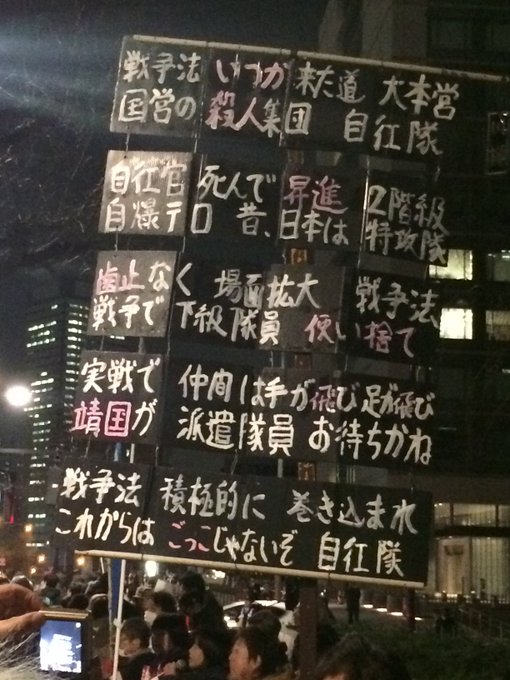 戦争法 いつか来た道 大本営
国営の殺人集団 自衛隊
自衛官 死んで 昇進 2階級
自爆テロ 昔、日本は 特攻隊
歯止なく 場面拡大 戦争法
戦争で 下級隊員 使い捨て
実戦で 仲間は手が飛び足が飛び
靖国が 派遣隊員 お待ちかね
戦争法 積極的に 巻き込まれ
これからは ごっこじゃないぞ 自衛隊